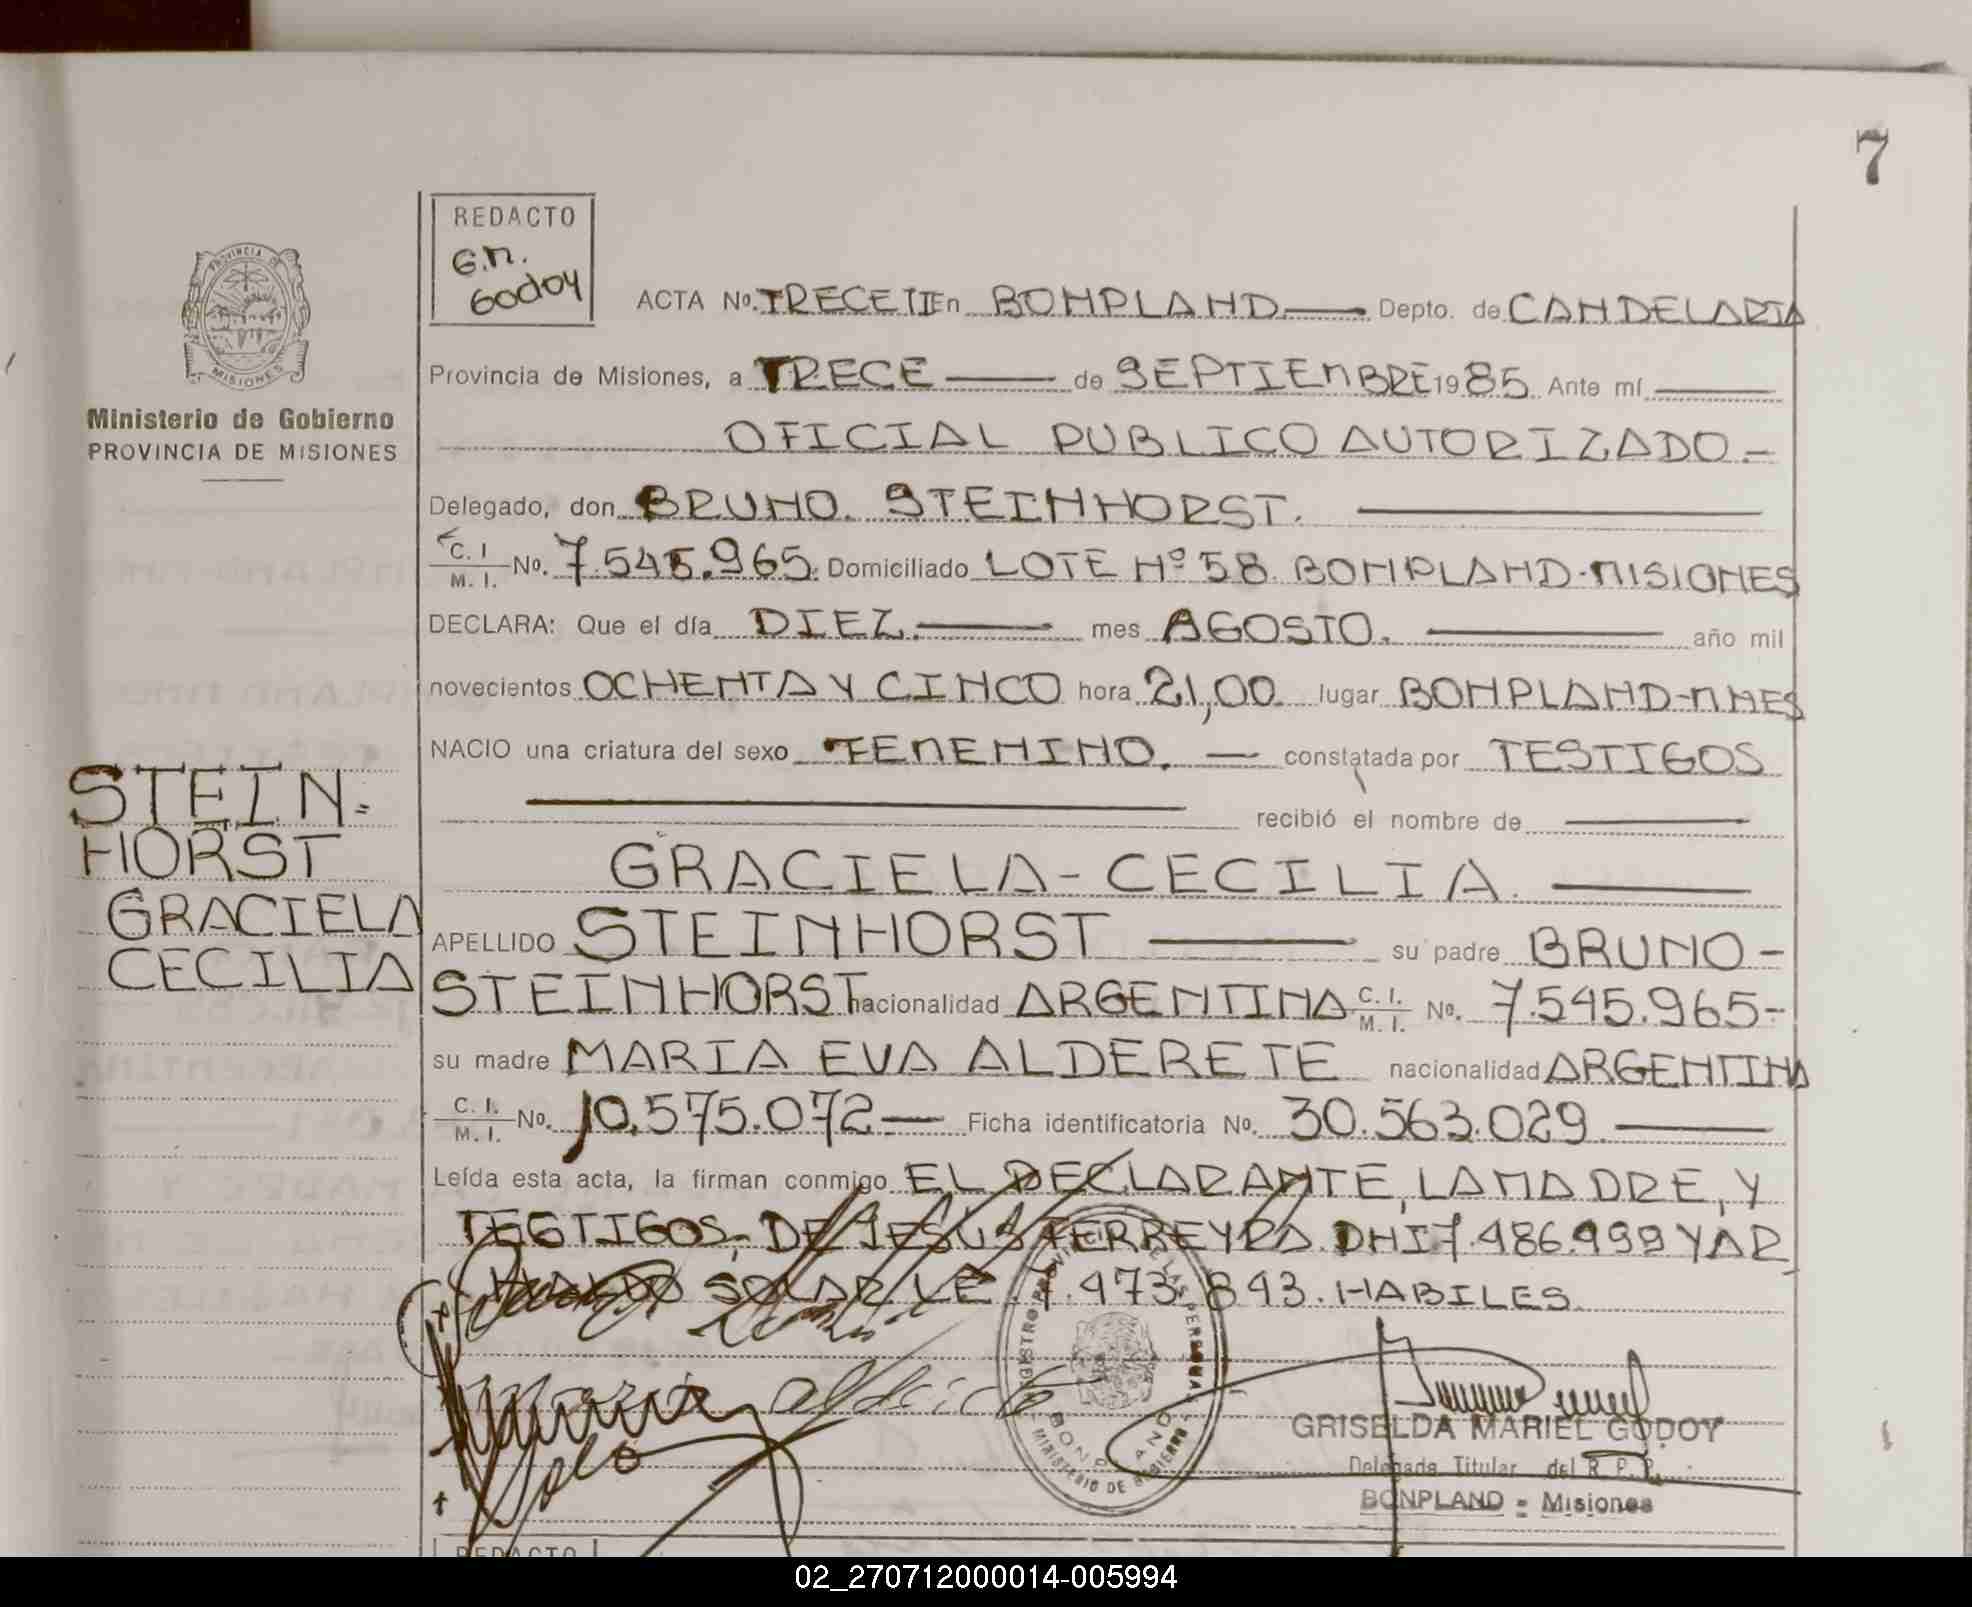 7
REDACTO
G.M.
Godoy
PROVINCIA DE
MISIONES
Ministerio de Gobierno
PROVINCIA DE MISIONES
ACTA No. TRECE En BONPLAND Depto. de CANDELARIA
Provincia de Misiones, a TRECE de SEPTIEMBRE 1985. Ante mí
OFICIAL PUBLICO AUTORIZADO -
Delegado, don BRUNO. STEINHORST.
C. I
M. I. No. 7.545.965. Domiciliado LOTE Nº 58 BONPLAND-MISIONES
DECLARA: Que el día DIEZ. mes AGOSTO. año mil
novecientos OCHENTA Y CINCO hora 21,00. lugar BONPLAND-MNES
NACIO una criatura del sexo FEMENINO. constatada por TESTIGOS
recibió el nombre de
GRACIELA-CECILIA.
STEIN=
HORST
GRACIELA
CECILIA
APELLIDO STEINHORST su padre BRUNO -
STEINHORST nacionalidad ARGENTINA C. I. M. I. No. 7.545.965-
su madre MARIA EVA ALDERETE nacionalidad ARGENTINA
C. I. M. I. No. 10.575.072 Ficha identificatoria No. 30.563.029
Leída esta acta, la firman conmigo EL DECLARANTE, LA MADRE, Y
TESTIGOS, DE JESUS FERREYRA DNI 7.486.999 Y AR
SOLAR LE 7.473.843. HABILES
REGISTRO PROVINCIAL DE LAS PERSONAS
BONPLAND
MINISTERIO DE GOBIERNO
GRISELDA MARIEL GODOY
Delegada Titular del R. P. P.
BONPLAND = Misiones
REDACTO
02_270712000014-005994